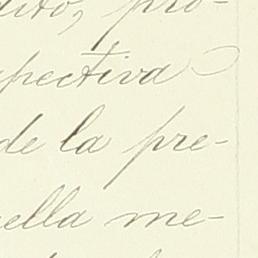 dito, pro-
pectiva
de la pre-
ella me-